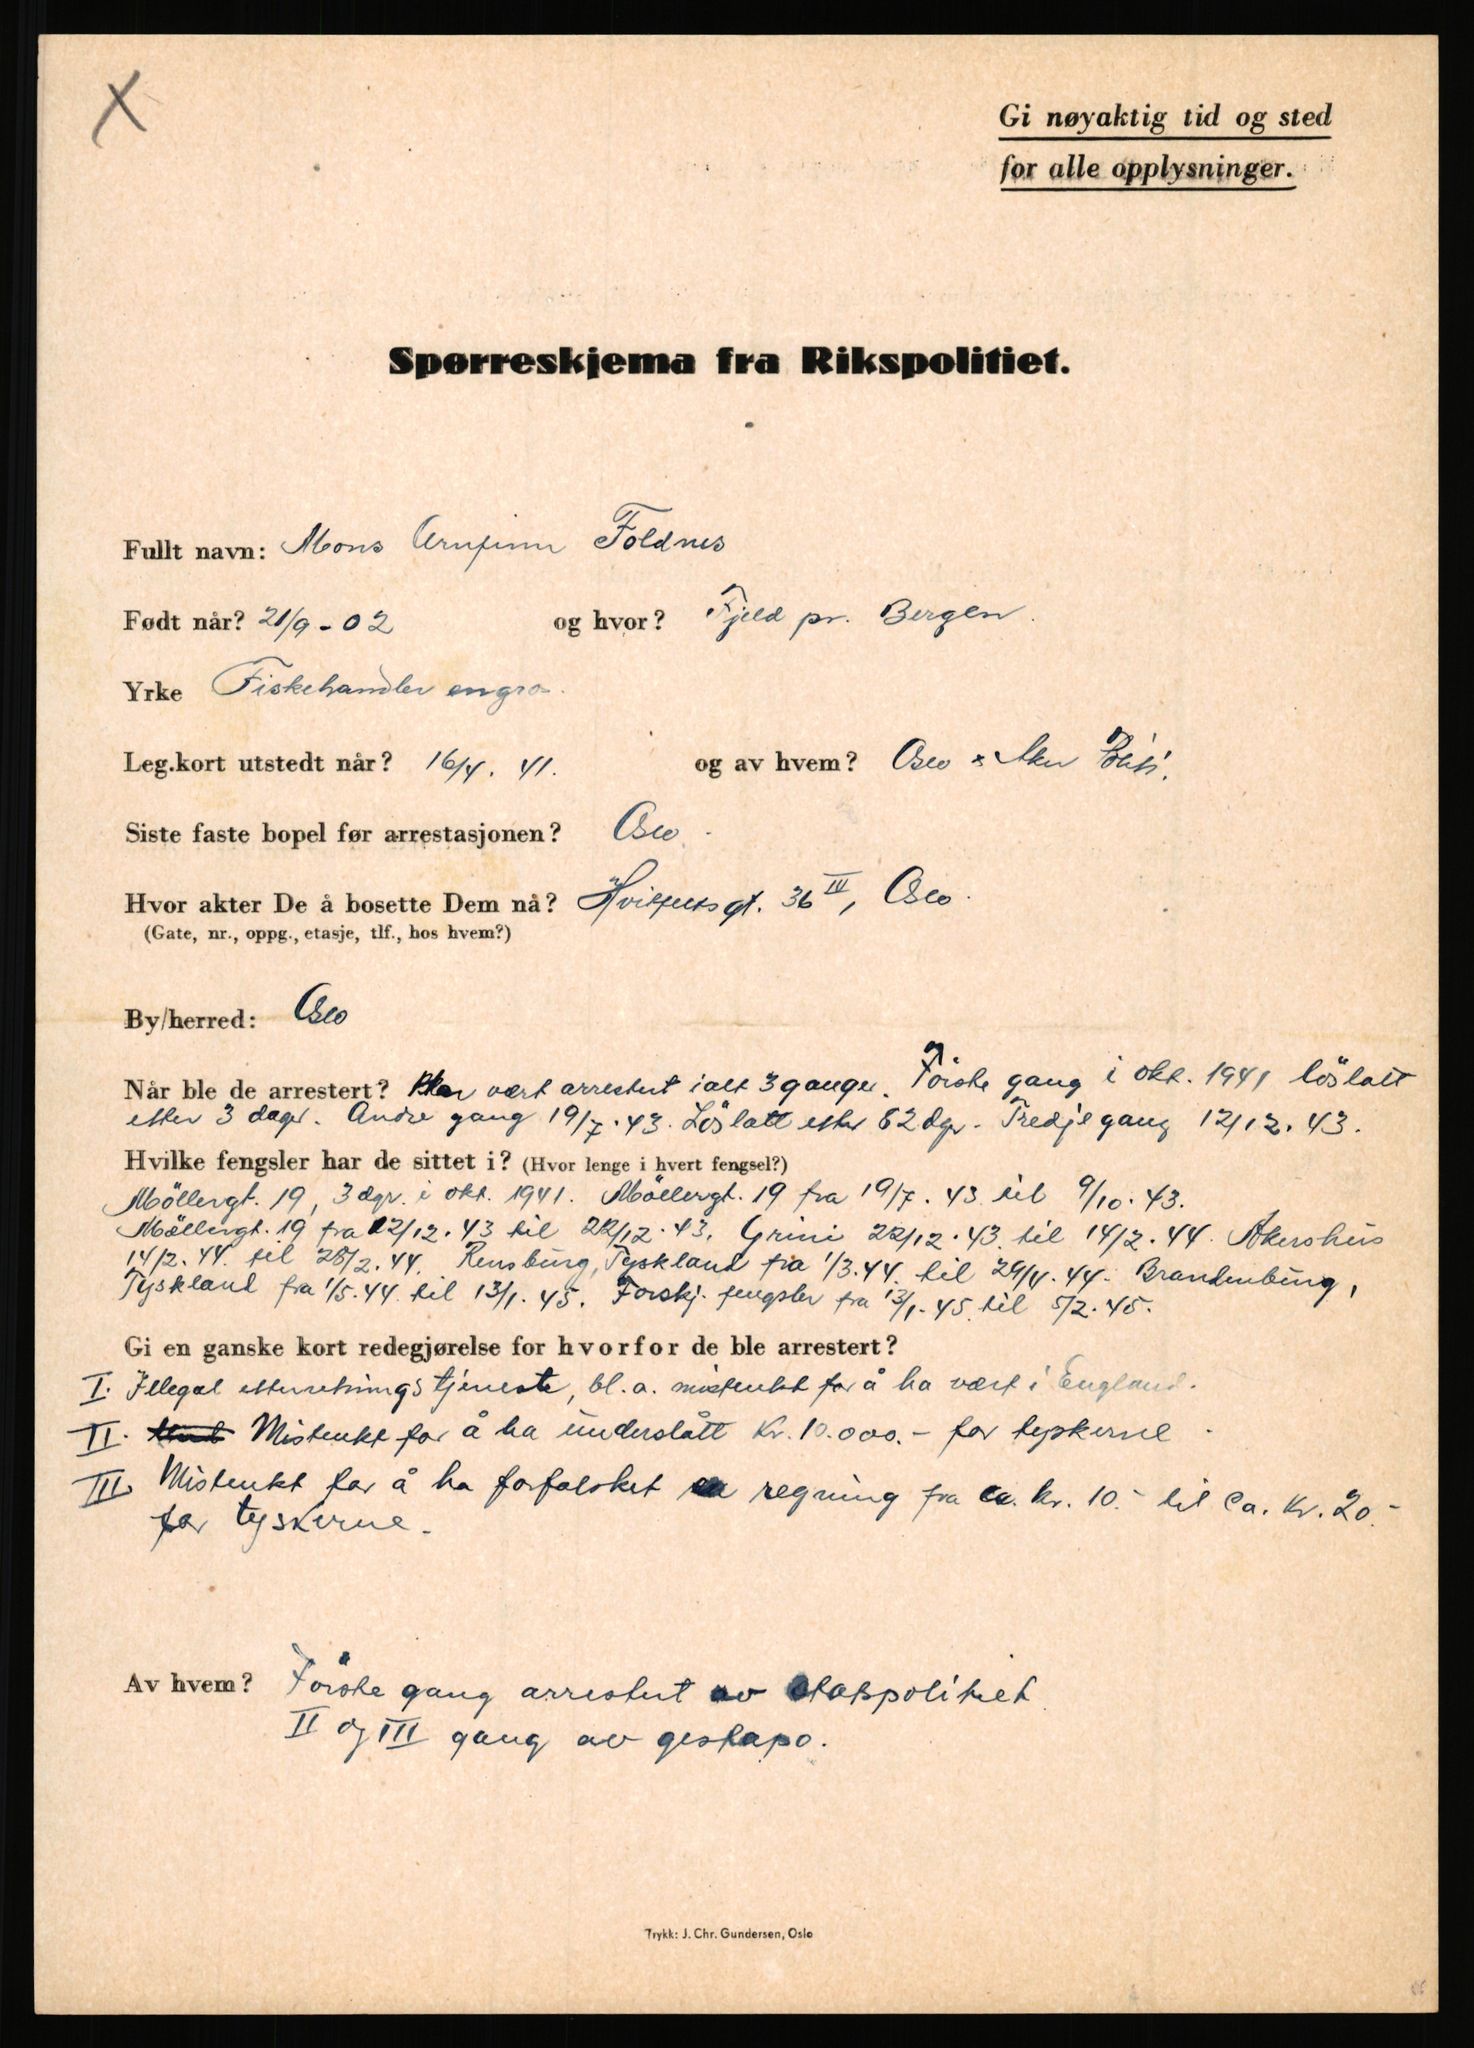 X
Gi nøyaktig tid og sted
for alle opplysninger.
Spørreskjema fra Rikspolitiet.
Fullt navn: Mons Arnfinn Foldnes
Født når? 21/9-02 og hvor? Fjeld pr. Bergen.
Yrke Fiskehandler engros.
Leg.kort utstedt når? 16/4. 41. og av hvem? Oslo & Aker Politi.
Siste faste bopel før arrestasjonen? Oslo.
Hvor akter De å bosette Dem nå? Hvitfeltsgt. 36 III, Oslo.
(Gate, nr., oppg., etasje, tlf., hos hvem?)
By/herred: Oslo
Når ble de arrestert? Har vært arrestert ialt 3 ganger. Förste gang i okt. 1941 löslatt
etter 3 dager. Andre gang 19/7.43. Löslatt etter 82 dgr. Tredje gang 12/12.43.
Hvilke fengsler har de sittet i? (Hvor lenge i hvert fengsel?)
Möllergt. 19, 3 dgr. i okt. 1941. Möllergt. 19 fra 19/7.43 til 9/10.43.
Möllergt. 19 fra 12/12.43 til 22/12.43. Grini 22/12.43 til 14/2.44. Akershus
14/2.44. til 28/2.44. Rensburg, Tyskland fra 1/3.44. til 29/4.44. Brandenburg,
Tyskland fra 1/5.44 til 13/1.45. Forskj. fengsler fra 13/1.45 til 5/2.45.
Gi en ganske kort redegjørelse for hvorfor de ble arrestert?
I. Illegal etterretningstjeneste, bl.a. mistenkt for å ha vært i England.
II. Mistenkt for å ha underslått Kr. 10.000.- for tyskerne.
III. Mistenkt for å ha forfalsket en regning fra ca. kr. 10.- til ca. kr. 20.-
for tyskerne.
Av hvem? Förste gang arrestert av statspolitiet
II og III gang av gestapo.
Trykk: J. Chr. Gundersen, Oslo